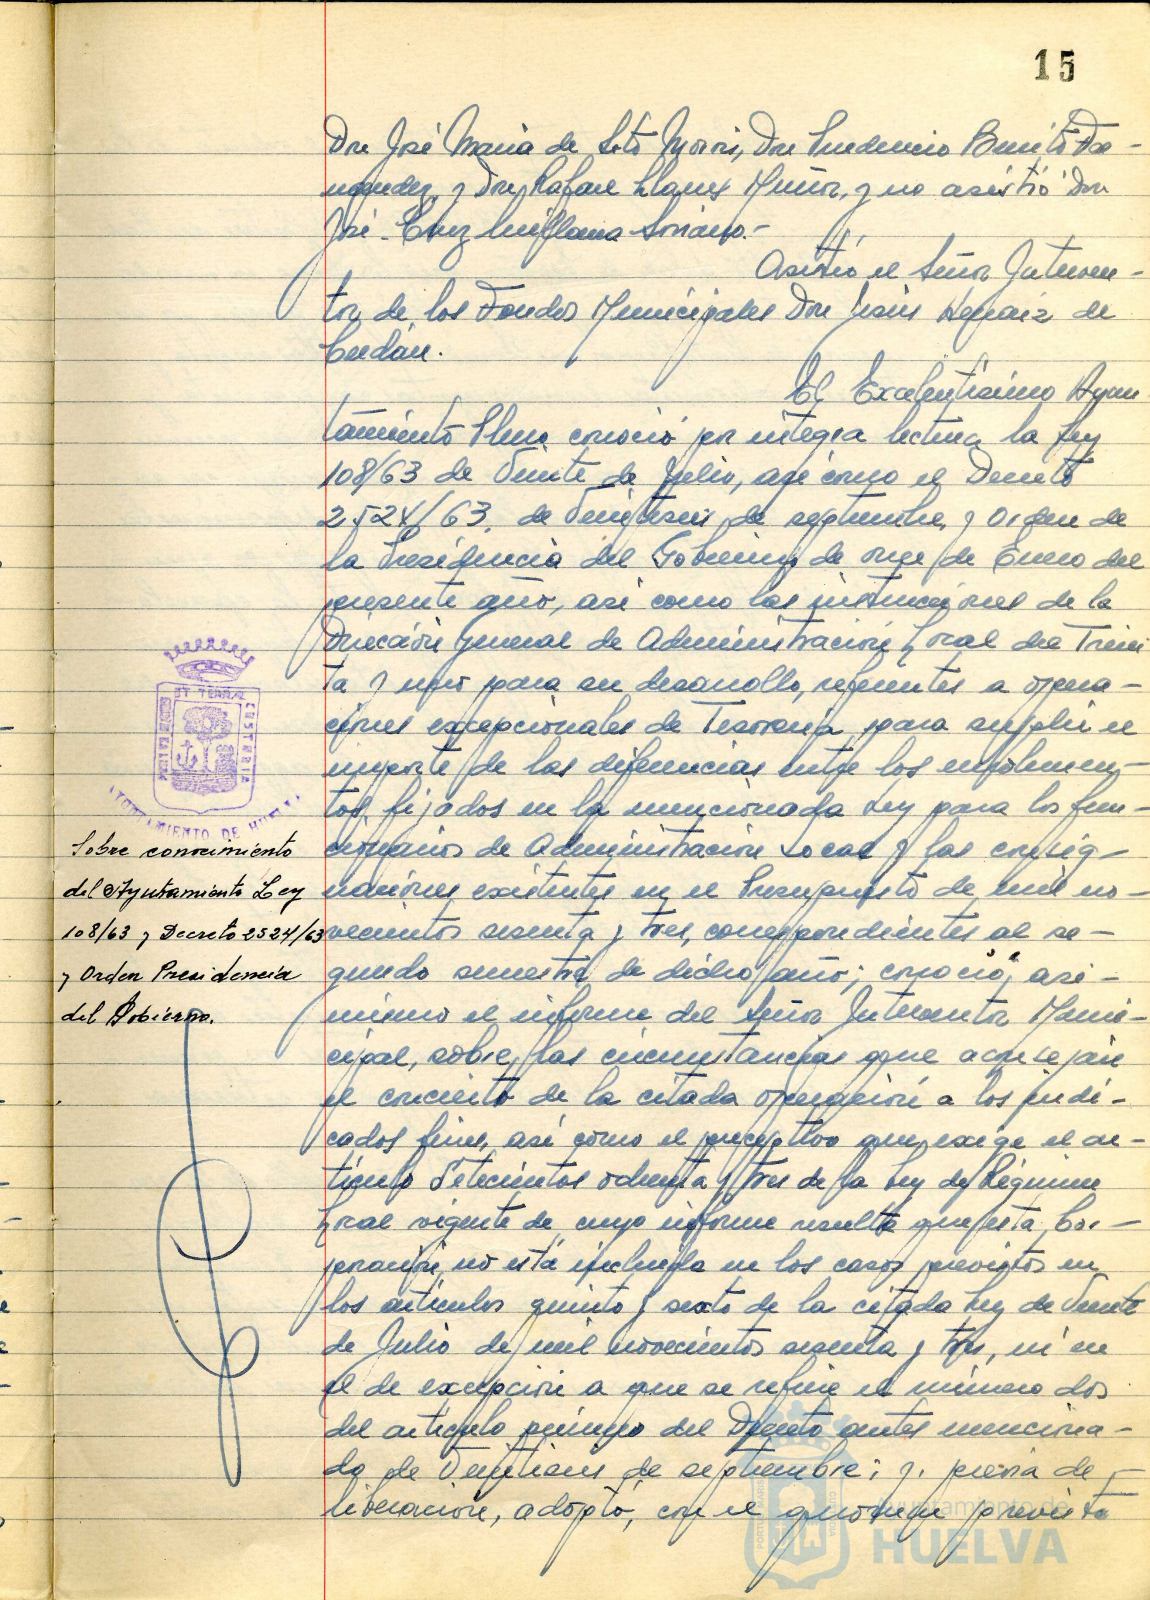 15
Don José María de Soto Morris, Don Prudencio Benito Fer-
nandez, y Don Rafael Llanes Muñoz, y no asistió Don
José Cruz Soriano.-
Asistió el Señor Interven-
tor de los Fondos Municipales Don Jesús de
Cerdán.
El Excelentísimo Ayun
tamiento Pleno conoció por integra lectura la Ley
108/63 de Veinte de Julio, así como el Decreto
2524/63, de Veintiseis de septiembre, y Orden de
la Presidencia del Gobierno de once de Enero del
presente año, así como las instrucciones de la
Dirección General de Administración Local de Trein
ta y uno para su desarrollo, referentes a opera-
ciones excepcionales de Tesorería para suplir el
importe de las diferencias entre los emolumen-
tos fijados en la mencionada Ley para los fun-
cionarios de Administración Local y las consig-
naciones existentes en el Presupuesto de mil no-
vecientos sesenta y tres, correspondientes al se-
gundo semestre de dicho año; conoció, asi-
mismo el informe del Señor Interventor Muni-
cipal, sobre las circunstancias que aconsejan
el concierto de la citada operación a los indi-
cados fines, así como el preceptivo que exige el ar-
tículo Setecientos ochenta y tres de la Ley de Régimen
Local vigente de cuyo informe resulta que esta Cor-
poración, no está incluida en los casos previstos en
los artículos quinto y sexto de la citada Ley de Veinte
de Julio de mil novecientos sesenta y tres, ni en
el de excepción a que se refiere el número dos
del artículo primero del Decreto antes menciona-
do de Veintiseis de septiembre; y, previa de-
liberación, adoptó, con el quorum previsto
ET TERRAE CUSTODIA
PORTUS MARIS
AYUNTAMIENTO DE HUELVA
Sobre conocimiento
del Ayuntamiento Ley
108/63 y Decreto 2524/63
y Orden Presidencia
del Gobierno.
Ayuntamiento de
HUELVA